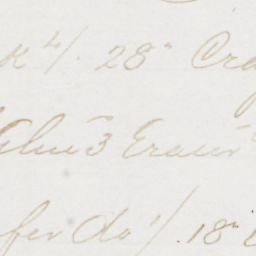 K 4/. 28" Cra
Glue 3 Eraser
fer do 1/. 18"